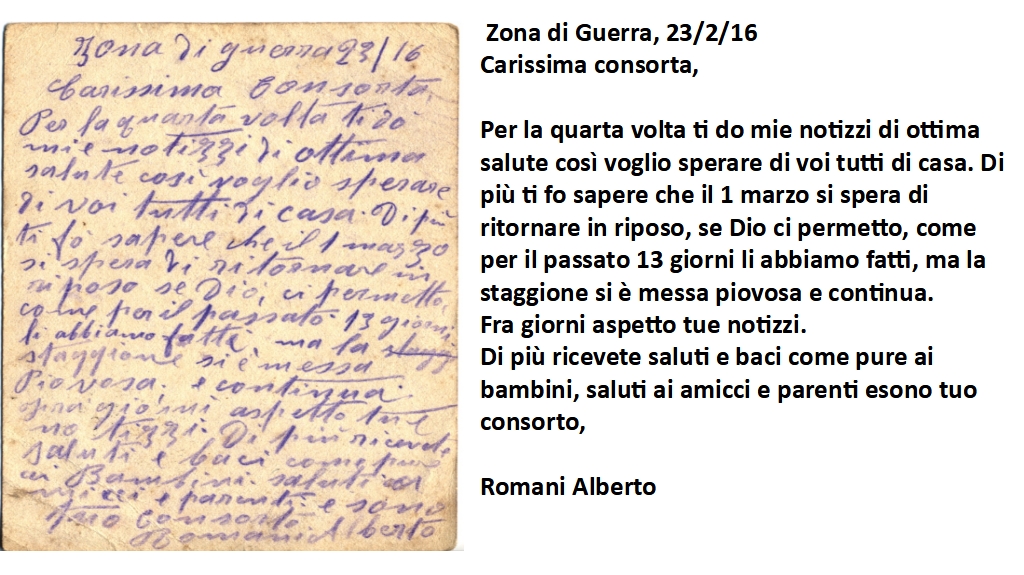 Zona di guerra 23/16
Carissima Consorta
Per la quarta volta ti dò
mie notizzi di ottima
salute così voglio sperare
di voi tutti di casa. Di più
ti fò sapere che il 1 marzo
si spera di ritornare in
riposo se Dio, ci permetto,
come per il passato 13 giorni
li abbiamo fatte, ma la stagg
staggione si è messa
Piovosa. e continua.
fra giorni aspetto tue
no tizzi. Di più ricevete
saluti e baci come pure
ai Bambini saluti ai
amicci e parenti e sono
tuo consorto
Romani Alberto
Zona di Guerra, 23/2/16
Carissima consorta,
Per la quarta volta ti do mie notizzi di ottima
salute così voglio sperare di voi tutti di casa. Di
più ti fo sapere che il 1 marzo si spera di
ritornare in riposo, se Dio ci permetto, come
per il passato 13 giorni li abbiamo fatti, ma la
staggione si è messa piovosa e continua.
Fra giorni aspetto tue notizzi.
Di più ricevete saluti e baci come pure ai
bambini, saluti ai amicci e parenti esono tuo
consorto,
Romani Alberto